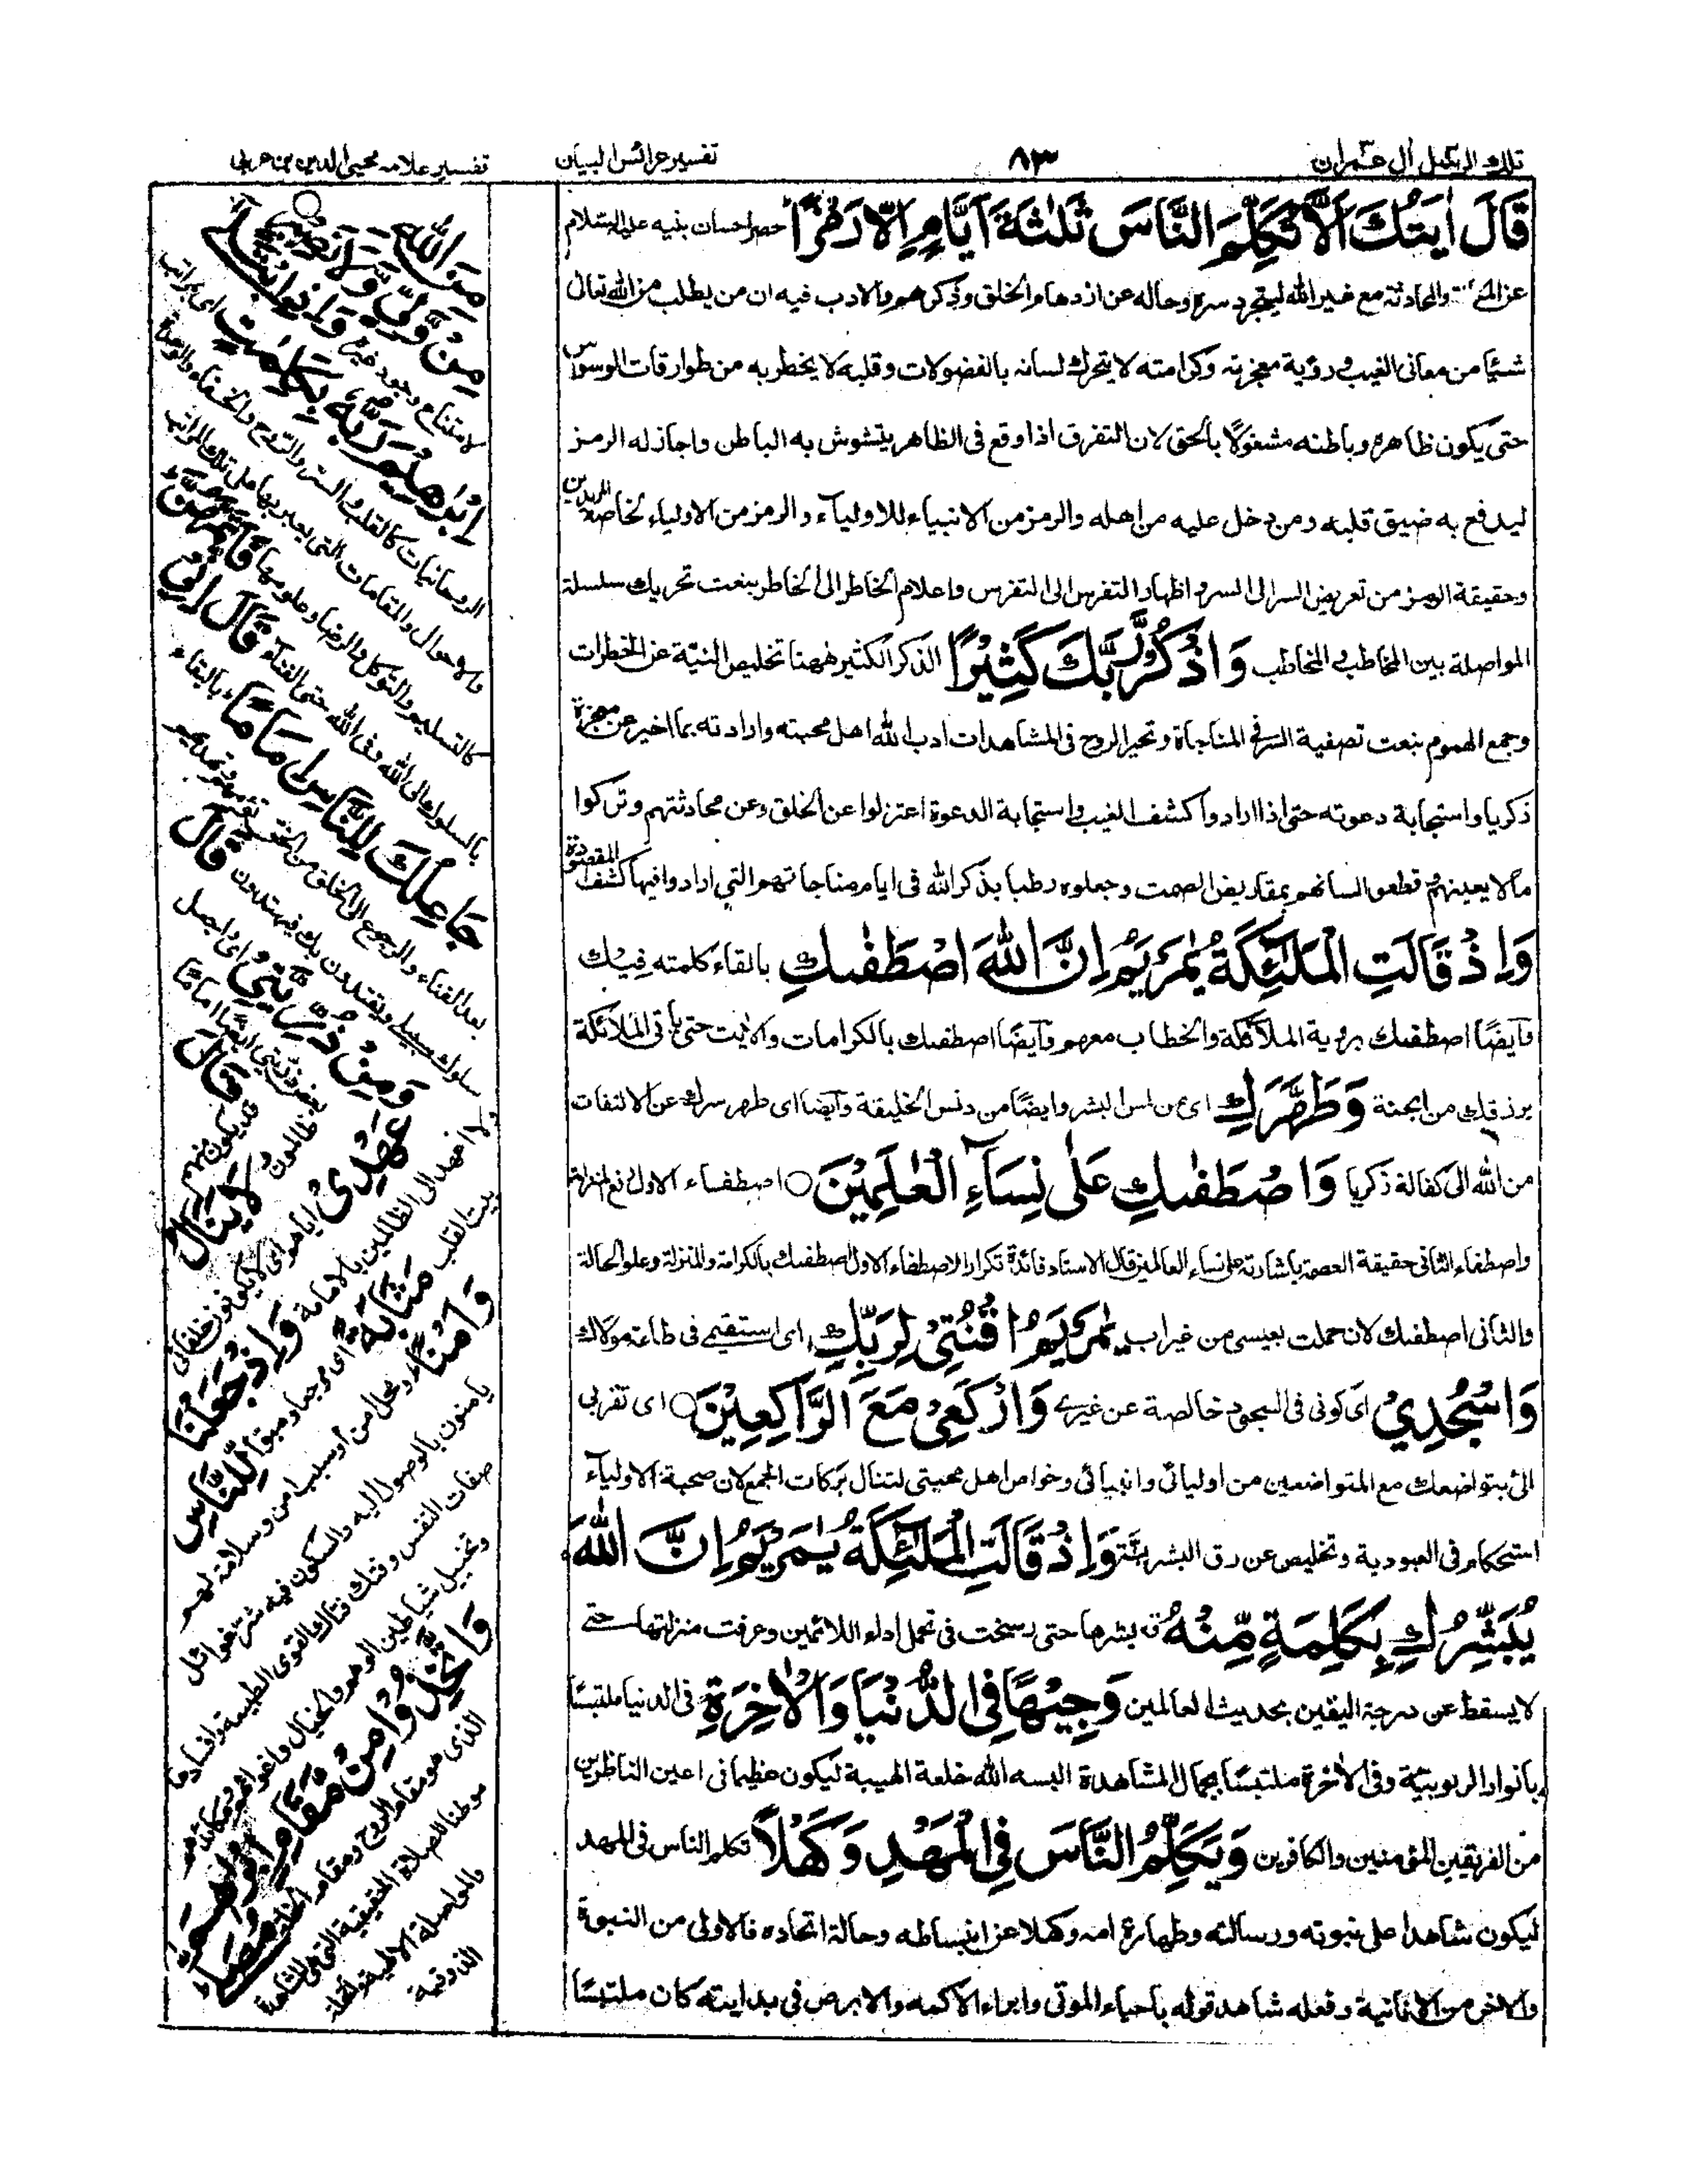 تلك الرسل ال عمران
٨٣
تفسير عرائس البيان
تفسير علامه محيي الدين بن عربي
قَالَ اٰيَتُكَ اَلَّا تُكَلِّمَ النَّاسَ ثَلٰثَةَ اَيَّامٍ اِلَّا رَمْزًا حصر لسان نبيه عليه السلام
والمحادثة مع غير الله ليتجرد سره وحاله عن ازدحام الخلق وذكرهم والادب فيه ان من يطلب من الله تعالى
شيئا من معانى الغيب فى رؤية معجزته وكرامته لا يتحرك لسانه بالفضولات وقلبه لا يخطر به من طوارقات الوسواس
حتى يكون ظاهره وباطنه مشغولًا بالحق لان التفرق اذا وقع فى الظاهر يتشوش به الباطن واجاز له الرمز
ليدفع به ضيق قلبه ومن دخل عليه من اهله والرمز من الانبياء للاولياء والرمز من الاولياء لخاصة المريدين
وحقيقة الرمز من تعريض السر الى السر واظهار التفرس الى التفرس واعلام الخاطر الى الخاطر بنعت تحريك سلسلة
المواصلة بين المخاطب والمخاطب وَاذْكُرْ رَّبَّكَ كَثِيْرًا الذكر الكثير ههنا تخليص النيّة عن الخطرات
وجمع الهموم بنعت تصفية السر فى المناجاة وتحير الروح فى المشاهدات ادب الله اهل محبته وارادته بما اخبر عن معجزة
ذكريا واستجابة دعوته حتى اذا ارادوا كشف الغيب واستجابة الدعوة اعتزلوا عن الخلق وعن محادثتهم وتركوا
مالا يعينهم قطعوا لسانهم بمقاريض الصمت وجعلوه رطبا بذكر الله فى ايام مناجاتهم التى ارادوا فيها كشف المقصودة
وَاِذْ قَالَتِ الْمَلٰٓئِكَةُ يٰمَرْيَمُ اِنَّ اللّٰهَ اصْطَفٰىكِ بالقاء كلمته فيك
وايضًا اصطفىك برؤية الملائكة والخطاب معهم وايضًا اصطفىك بالكرامات والايت حتى ياتى الملائكة
برزقك من الجنة وَطَهَّرَكِ اى عن لمس البشر وايضًا من دنس الخليقة وايضا اى طهر سرك عن الالتفات
من الله الى كفالة ذكريا وَاصْطَفٰىكِ عَلٰى نِسَآءِ الْعٰلَمِيْنَ اصطفاء الاول
واصطفاء الثانى حقيقة العصمة قال الاستاد فائدة تكرار الاصطفاء الاول اصطفىك بالكرامة والمنزلة وعلو الحالة
والثانى اصطفىك لان حملت بعيسى من غير اب يٰمَرْيَمُ اقْنُتِيْ لِرَبِّكِ اى استقيمى فى طاعة مولاك
وَاسْجُدِيْ اى كونى فى السجود خالصة عن غيرى وَارْكَعِيْ مَعَ الرَّاكِعِيْنَ اى تقربى
الىّ بتواضعك مع المتواضعين من اوليائى وانبيائى وخواص اهل محبتى لتنال بركات الجمع لان صحبة الاولياء
استحكام فى العبودية وتخليص عن رق البشرية وَاِذْ قَالَتِ الْمَلٰٓئِكَةُ يٰمَرْيَمُ اِنَّ اللّٰهَ
يُبَشِّرُكِ بِكَلِمَةٍ مِّنْهُ بشرها حتى رسخت فى تحمل اداء اللائمين وعرفت منزلتها حتى
لا يسقط عن درجة اليقين بحديث العالمين وَجِيْهًا فِى الدُّنْيَا وَالْاٰخِرَةِ فى الدنيا ملتبسًا
بانوار الربوبية وفى الاخرة ملتبسًا بجمال المشاهدة البسه الله خلعة الهيبة ليكون عظيما فى اعين الناظرين
من الفريقين المؤمنين والكافرين وَيُكَلِّمُ النَّاسَ فِى الْمَهْدِ وَكَهْلًا تكلم الناس فى المهد
ليكون شاهدا على نبوته ورسالته وطهارة امه وكهلا عن انبساطه وحالة اتحاده فالاولى من النبوة
والاخر من الانانية وفعله شاهد قوله باحياء الموتى وابراء الاكمه والابرص فى بدايته كان ملتبسًا
مِنَ اللّٰهِ
مِنْ وَّلِيٍّ وَّلَا نَصِيْرٍ
لامتناع وجود غيره وَاِذِ ابْتَلٰٓى
اِبْرٰهٖمَ رَبُّهٗ بِكَلِمٰتٍ اى بمراتب
الروحانيات كالقلب والسر والروح والخفاء
والاحوال والمقامات التى يعبر بها على تلك المراتب
كالتسليم والتوكل والرضا وعلومها فَاَتَمَّهُنَّ
بالسلوك الى الله وفى الله حتى الفناء قَالَ اِنِّيْ
جَاعِلُكَ لِلنَّاسِ اِمَامًا بالبقاء
بعد الفناء والرجوع الى الخلق من الحق
سلوك سبيلى ويقتدون بك فيهتدون قَالَ
وَمِنْ ذُرِّيَّتِيْ اى واجعل
بعض ذريتى ايضا اماما قَالَ
قد يكون منهم
ظالمون لَا يَنَالُ
عَهْدِيْ
ولا اعهد الى الظالمين بالامامة وَاِذْ جَعَلْنَا
بيت القلب مَثَابَةً اى مرجعا لِّلنَّاسِ
وَاَمْنًا ومحل امن وسلامة لهم
يامنون بالوصول اليه والسكون فيه شر غوائل
صفات النفس وفتك قتال القوى الطبيعية وافسادها
وتخييل شياطين الوهم والخيال واغوائهم
وَاتَّخِذُوْا مِنْ مَّقَامِ اِبْرٰهٖمَ
الذى هو مقام الروح ومقام الخلة مُصَلًّى
موطنا للصلاة الحقيقية التى هى المشاهدة
والمواصلة الالهية والخلة
الذوقية